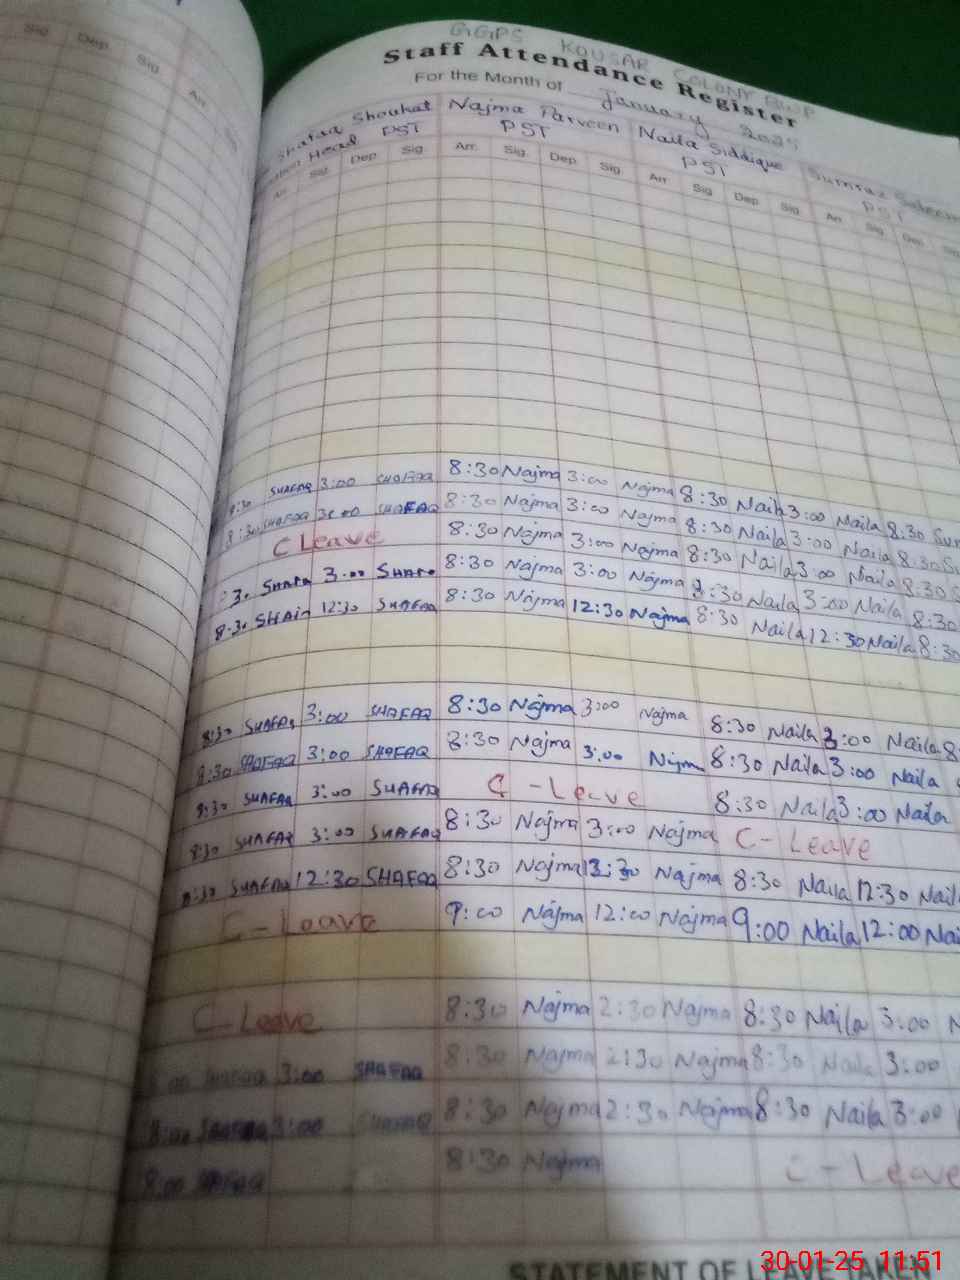 GGPS KOUSAR COLONY BWP
Staff Attendance Register
For the Month of January 2025
Shafaq Shoukat Najma Parveen Naila Siddique Sumraz Saleem
Head PST PST PST PST
Arr. Sig. Dep. Sig. Arr. Sig. Dep. Sig. Arr. Sig. Dep. Sig. Arr. Sig. Dep.
8:30 SHAFAQ 3:00 SHAFAQ 8:30 Najma 3:00 Najma 8:30 Naila 3:00 Naila 8:30 Sum
8:30 SHAFAQ 3:00 SHAFAQ 8:30 Najma 3:00 Najma 8:30 Naila 3:00 Naila 8:30 Su
C Leave 8:30 Najma 3:00 Najma 8:30 Naila 3:00 Naila 8:30 S
:3. SHAFA 3:00 SHAFA 8:30 Najma 3:00 Najma 8:30 Naila 3:00 Naila 8:30
8:30 SHAF 12:30 SHAFAQ 8:30 Najma 12:30 Najma 8:30 Naila 12:30 Naila 8:30
8:30 SHAFAQ 3:00 SHAFAQ 8:30 Najma 3:00 Najma 8:30 Naila 3:00 Naila 8:
8:30 SHAFAQ 3:00 SHAFAQ 8:30 Najma 3:00 Najma 8:30 Naila 3:00 Naila
8:30 SHAFAQ 3:00 SHAFAQ C - Leave 8:30 Naila 3:00 Naila
8:30 SHAFAQ 3:00 SHAFAQ 8:30 Najma 3:00 Najma C - Leave
8:30 SHAFAQ 12:30 SHAFAQ 8:30 Najma 12:30 Najma 8:30 Naila 12:30 Nail
C - Leave 9:00 Najma 12:00 Najma 9:00 Naila 12:00 Nai
C - Leave 8:30 Najma 2:30 Najma 8:30 Naila 3:00 N
:00 SHAFAQ 3:00 SHAFAQ 8:30 Najma 2:30 Najma 8:30 Naila 3:00
8:00 SHAFAQ 3:00 SHAFAQ 8:30 Najma 2:30 Najma 8:30 Naila 3:00
8:00 SHAFAQ 8:30 Najma C - Leave
STATEMENT OF LEAVE TAKEN
30-01-25 11:51